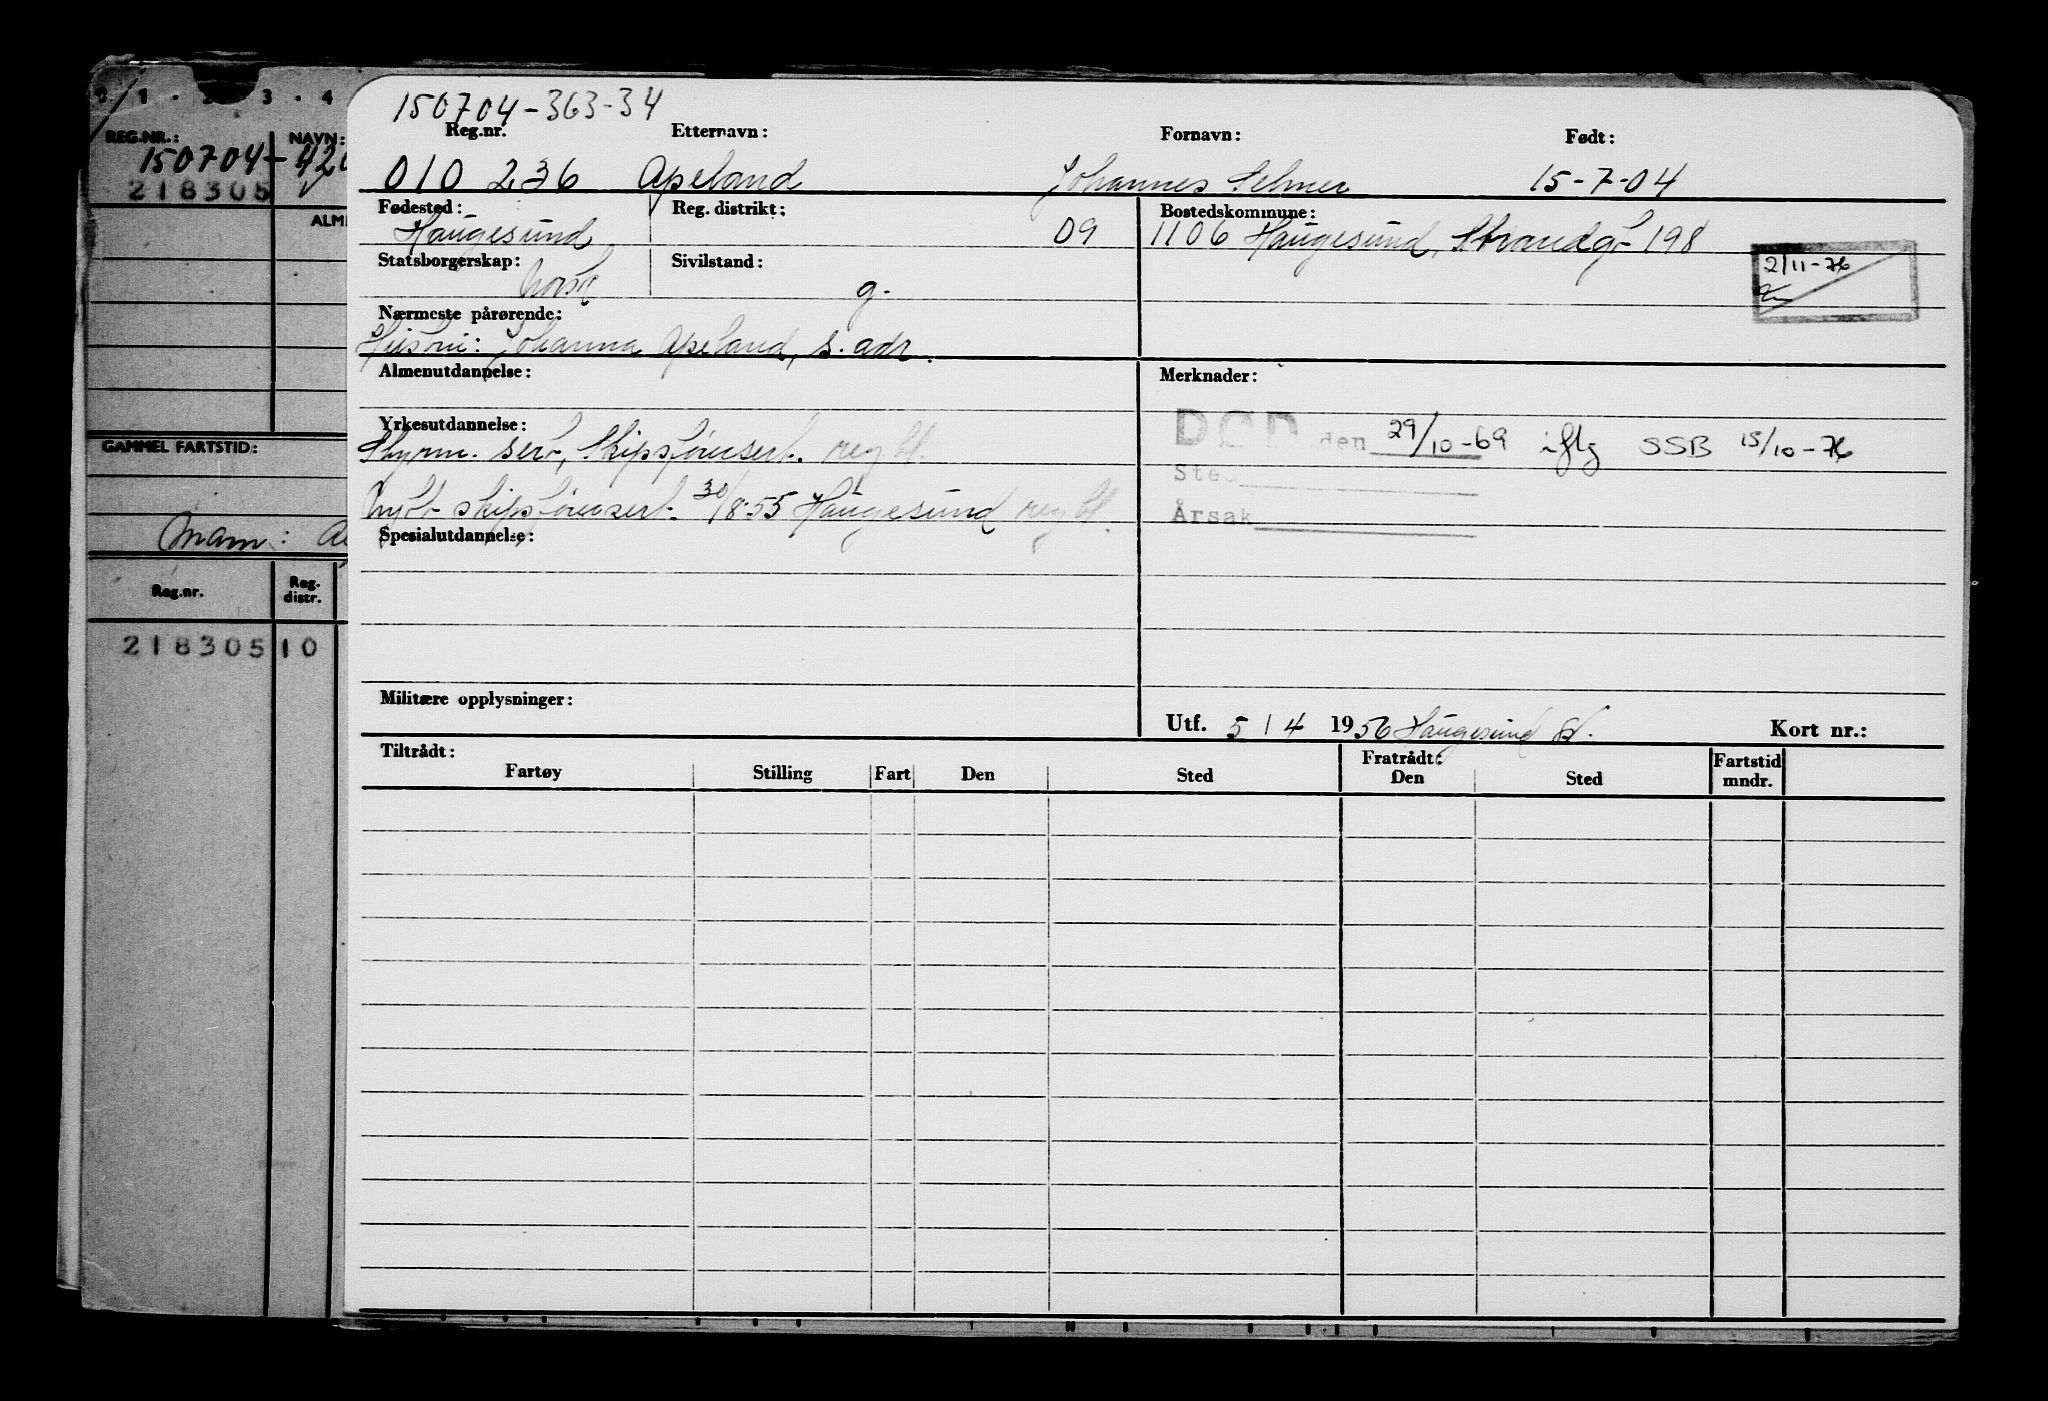 0 1 . 2 . 3 . 4
REG.NR.: NAVN:
150704-42
218305
ALM
GAMMEL FARTSTID:
Mam:
Reg.nr. Reg. distr.
218305 10
150704-363-34
Reg.nr. Etternavn: Fornavn: Født:
010 236 Apeland Johannes Selmer 15-7-04
Fødested: Reg. distrikt: Bostedskommune:
Haugesund 09 1106 Haugesund, Strandgt 198
Statsborgerskap: Sivilstand:
norsk g.
2/11-76
Nærmeste pårørende:
Hustru: Johanna Apeland, s. adr.
Almenutdannelse: Merknader:
Yrkesutdannelse:
Styrm. sert, Skipsførersert. reg bl.
DØD den 29/10-69 iflg SSB 15/10-76
Sted
Nytt skipsførersert. 30/8.55 Haugesund reg bl.
Årsak
Spesialutdannelse:
Militære opplysninger:
Utf. 5/4 1956 Haugesund Kort nr.:
Tiltrådt: Fratrådt:
Fartøy Stilling Fart Den Sted Den Sted Fartstid mndr.